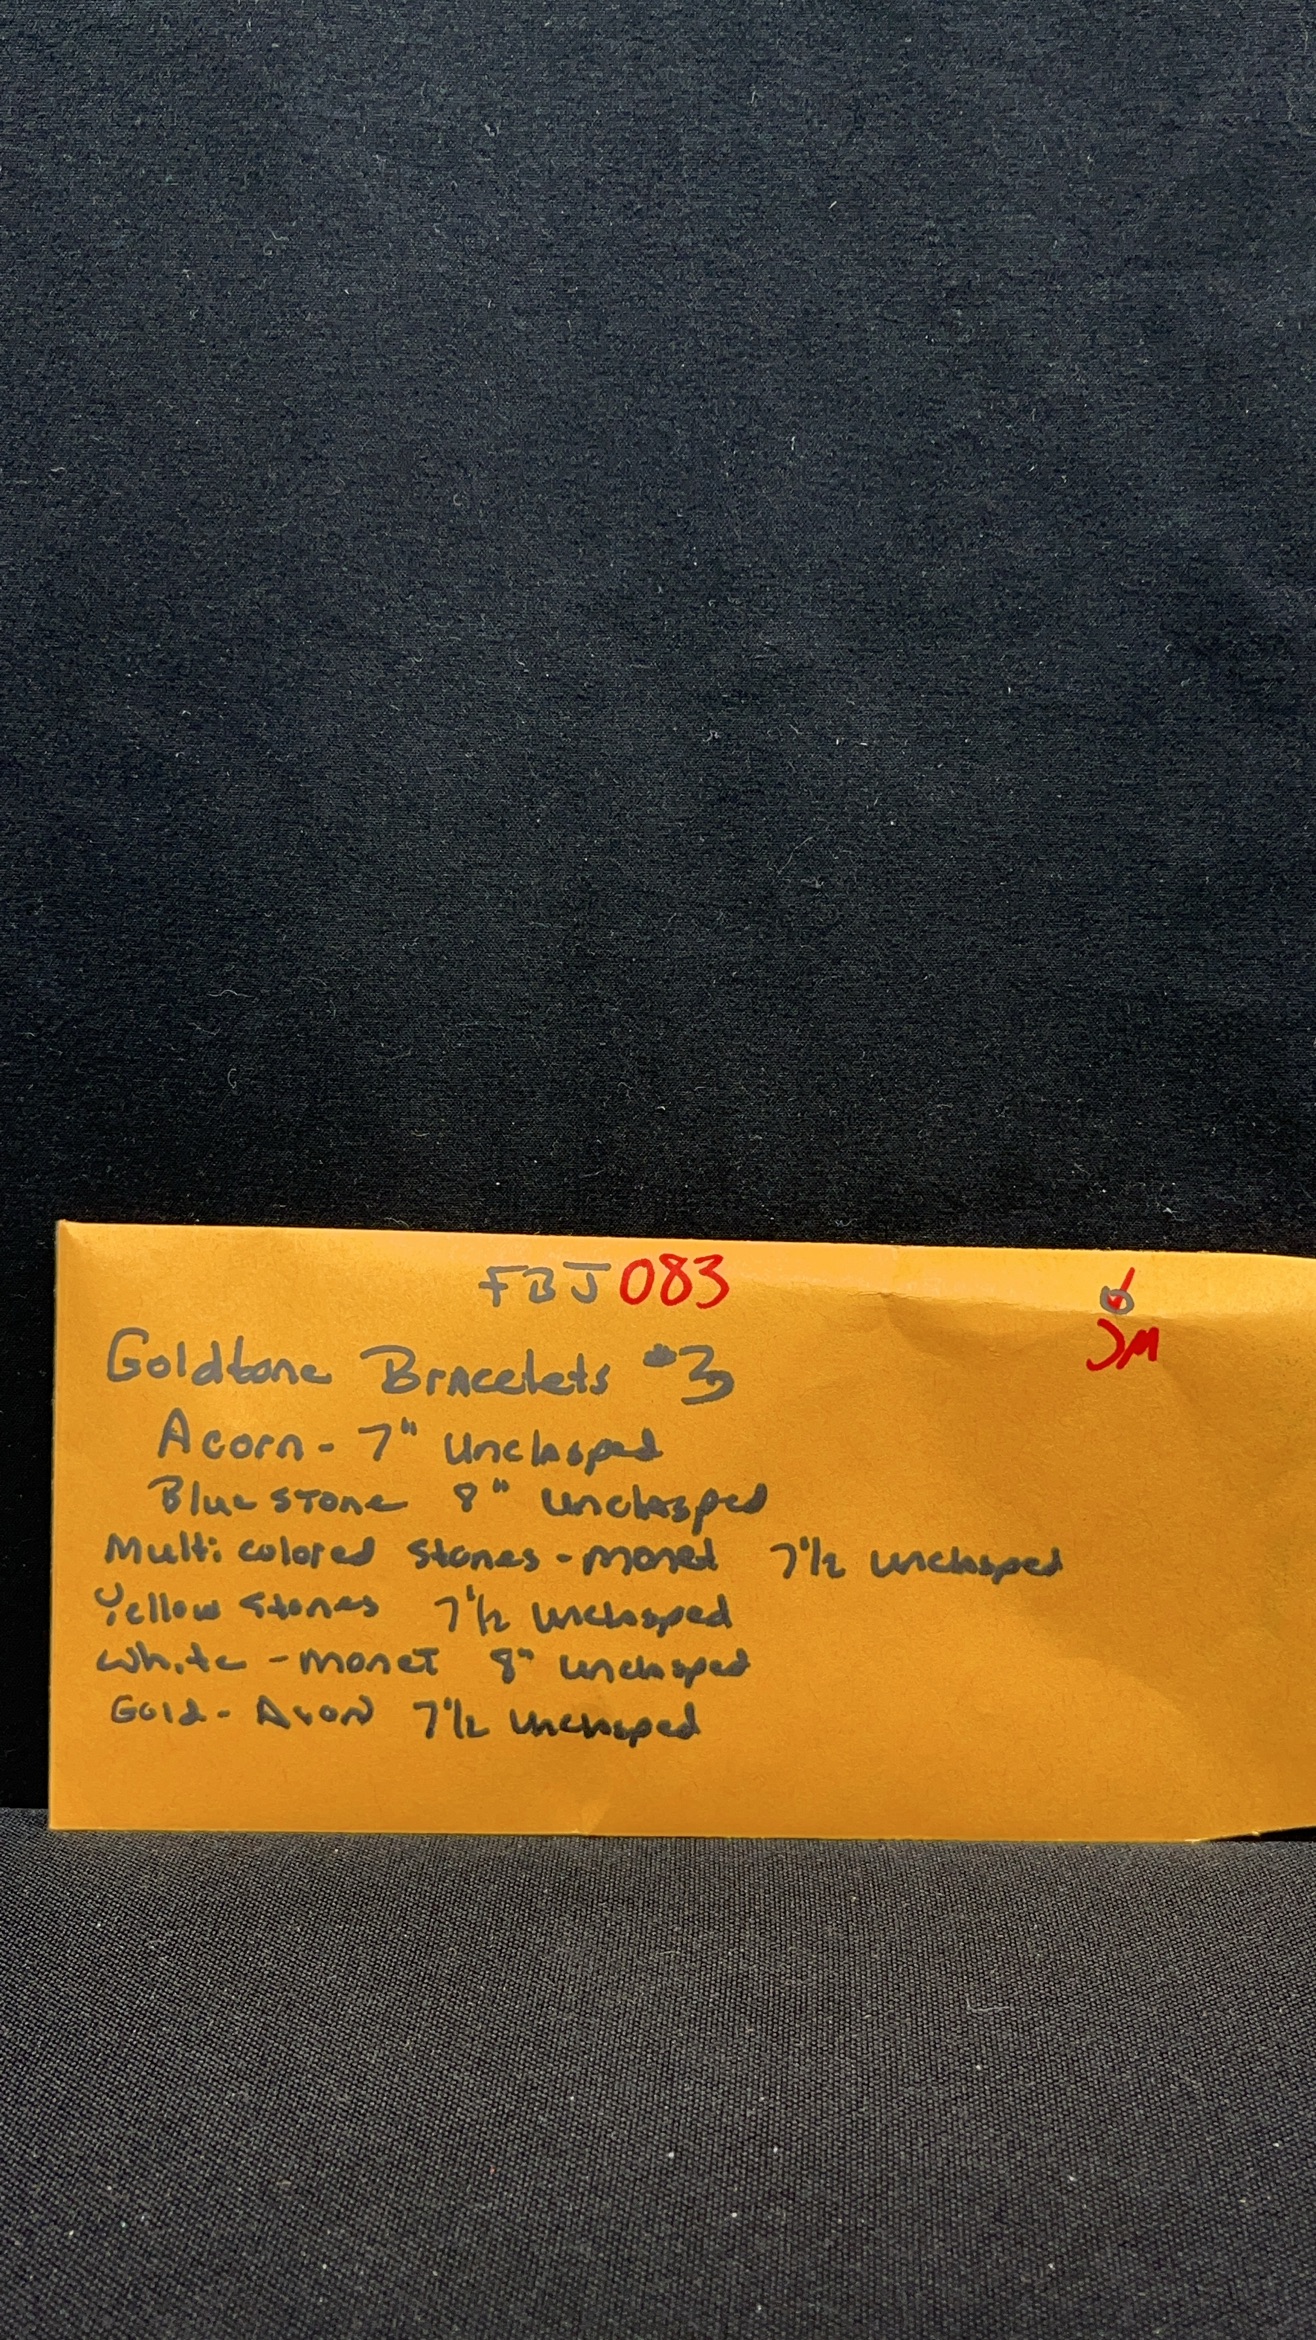 FBJ 083
JM
Goldtone Bracelets #3
Acorn - 7" unclasped
Blue stone 8" unclasped
Multi colored stones - monet 7 1/2 unclasped
Yellow stones 7 1/2 unclasped
White - monet 8" unclasped
Gold - Avon 7 1/2 unclasped